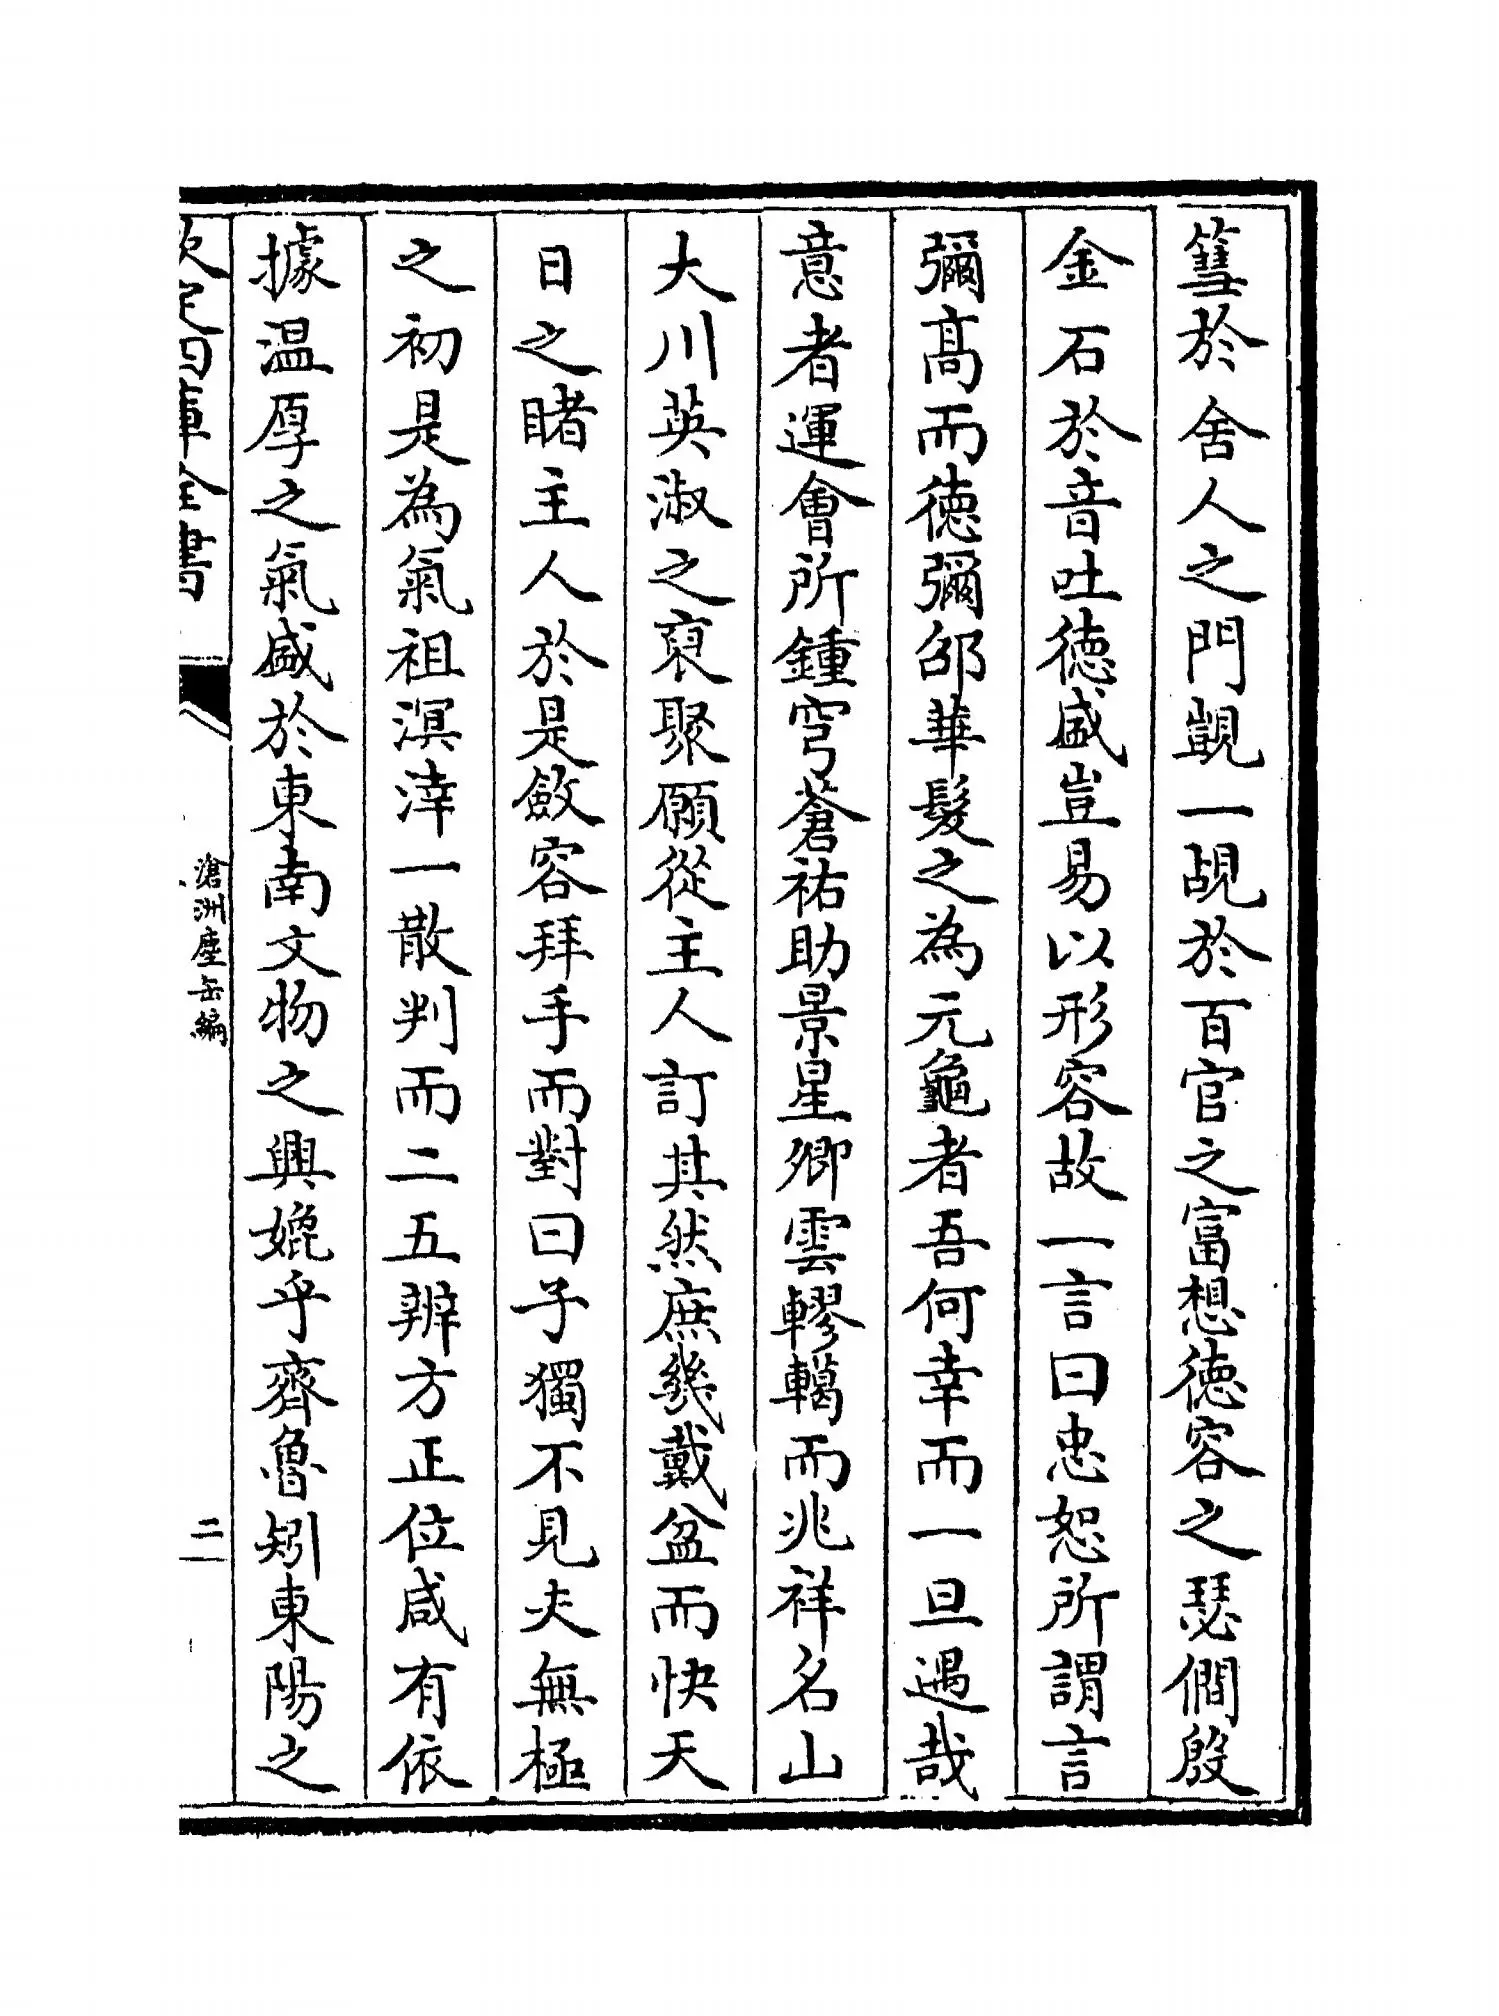 篲於舍人之門覬一覘於百官之富想徳容之瑟僩殷
金石於音吐徳盛豈易以形容故一言曰忠恕所謂言
彌髙而徳彌邵華髮之為元龜者吾何幸而一旦遇哉
意者運會所鍾穹蒼祐助景星卿雲轇轕而兆祥名山
大川英淑之裒聚願從主人訂其然庶幾戴盆而快天
日之睹主人於是斂容拜手而對曰子獨不見夫無極
之初是為氣祖溟涬一散判而二五辨方正位咸有依
據温厚之氣盛於東南文物之興娩乎齊魯矧東陽之
欽定四庫全書
滄洲塵缶編
二